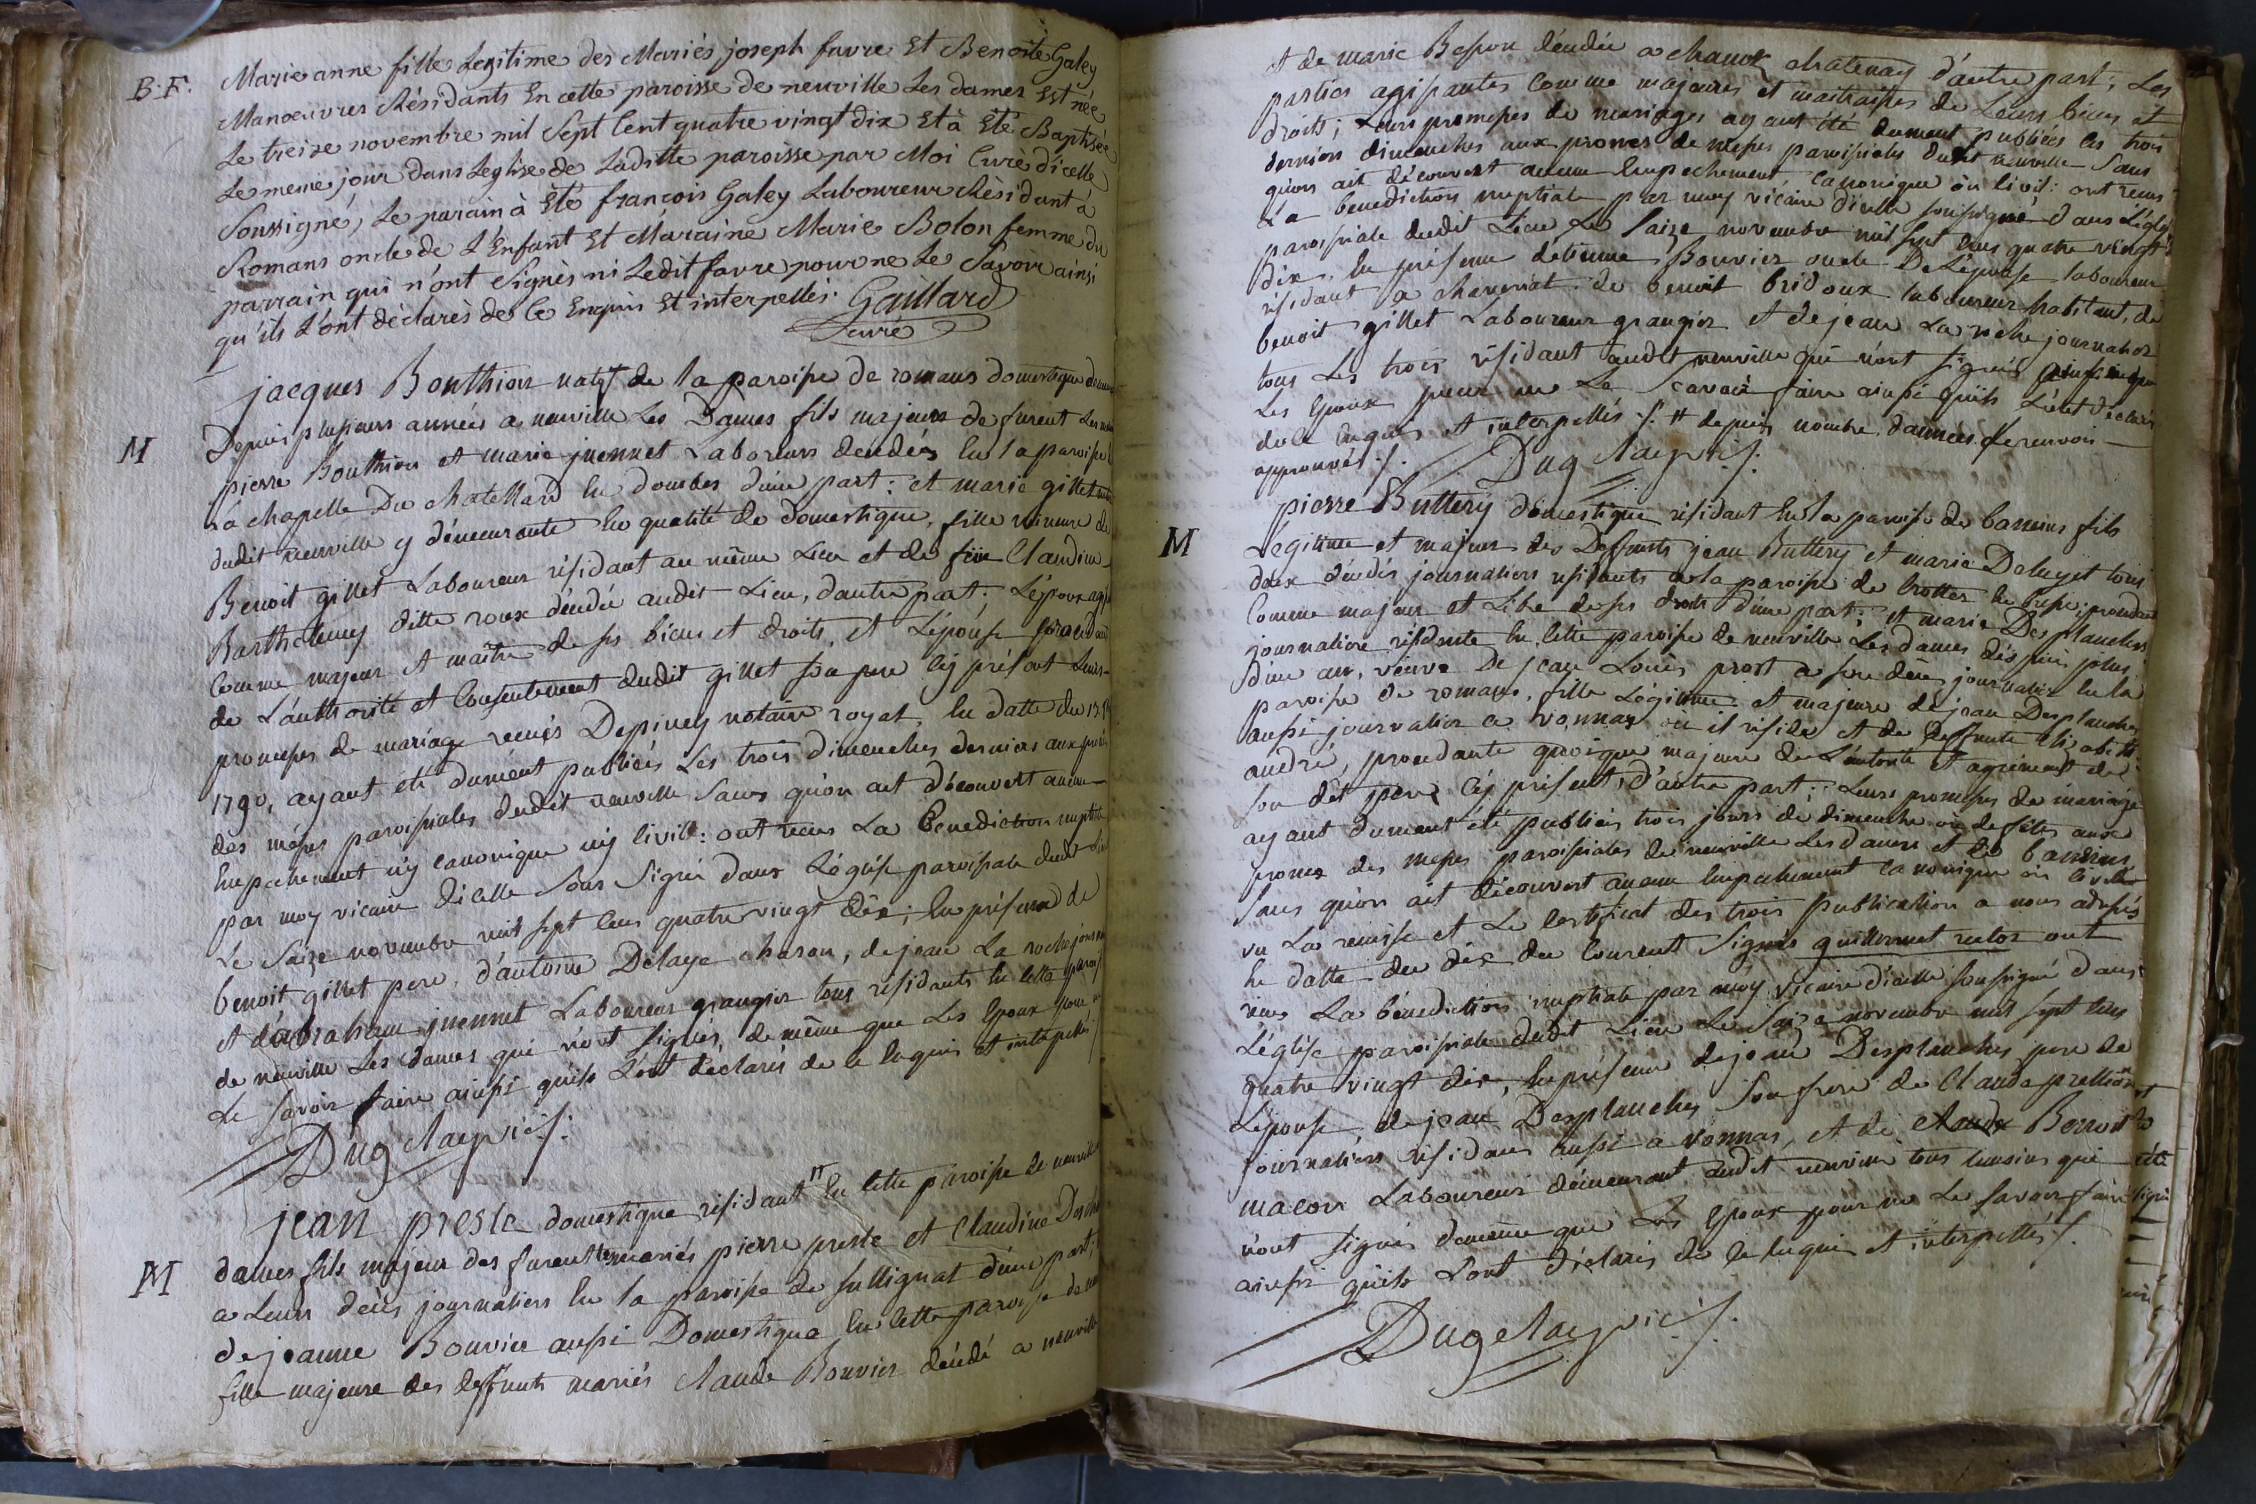 B. F.
Marie anne fille Legitime des Mariés joseph favre Et Benoite Galey
Manoeuvres Résidants En cette paroisse de neuville Les dames Est née
Le treize novembre mil Sept Cent quatre vingt dix Et à Eté Baptisée
Le meme jour dans Leglise de Laditte paroisse par Moi Curé dicelle
Soussigné, Le parain à Eté françois Galey Laboureur Résidant à
Romans oncle de L'Enfant Et Maraine Marie Bolon femme du
parrain qui n'ont Signès ni Ledit favre pour ne Le Savoir ainsi
qu'ils L'ont déclarès de Ce Enquis Et interpellès. Gaillard
Curé
M
jacques Bouthier natif de la paroisse de romans domestique
Depuis plusieurs années a neuville Les Dames fils majeur de furent
pierre Bouthier et marie juennet Laboreurs décédés En la paroisse
La chapelle Du chatellard En dombes d'une part : et marie gillet
dudit neuville y demeurante En qualité de domestique, fille mineure de
Benoit gillet Laboureur résidant au même Lieu et de füe Claudine
Barthelemy ditte roux décédée audit Lieu, d'autre part ; L'époux
Comme majeur et maître de ses biens et droits et L'épouse
de L'authorité et Consentement dudit gillet son pere Cy présent Leurs
promesses de mariage reçuës Depiney notaire royal En datte du
1790, ayant été dument publiées Les trois dimenches derniers aux
des mêsses paroissiales dudit neuville Sans qu'on ait découvert aucun
Empechement ny canonique ny Civille : ont reçus La Bénédiction nuptiale
par moy vicaire dicelle Sous Signé dans L'église paroissiale dudit
Le Saize novembre mil sept Cens quatre vingt dix ; En présence de
benoit gillet pere, d'antoine Delaye charon, de jean La roche
et d'abraham juennet Laboureur grangier tous résidants En cette
de neuville Les dames qui n'ont signés, de même que Les Epoux pour
Le savoir faire ainssi quils L'ont déclarés de ce Enquis et intérpellés
Dugelaey vic ./.
M
jean preste domestique résidant # En cette paroisse de neuville
dames fils majeur des furent les mariés pierre preste et Claudine
a Leurs décès journaliers En la paroisse de sullignat d'une part ;
de jeanne Bouvier aussi Domestique En cette paroisse de
fille majeure des deffunts mariés Claude Bouvier décédé a neuville
et de marie Besson décédée a chatenay d'autre part ; Les
parties agissantes Comme majeures et maitraisses de Leurs biens et
droits ; Leurs promesses de mariages ayant été dument publiées les trois
derniers dimenches aux prones de messes paroissiales dudit neuville Sans
qu'on ait découvert aucun Empechement canonique ou Civil : ont reçus
La benediction nuptiale par moy vicaire dicelle soussigné dans L'église
paroissiale dudit Lieu Le Saize novembre mil sept Cens quatre vingt
dix, En présence d'étienne Bouvier oncle De L'épouse laboureur
résidant a chaveriat. de benoit bridoux laboureur habitant, de
benoit gillet Laboureur grangier et de jean La roche journalier
tous Les trois résidant audit neuville qui n'ont signés
Les Epoux pour ne Le Scavoir faire ainssi quils L'ont déclarés
de Ce Enquis et interpellés ./. # depuis nombre d'années Le renvoi
approuvé ./. Dugelaey vic ./.
M
pierre Buttery domestique résidant En la paroisse de baneins fils
Légitime et majeur des Deffunts jean Buttery et marie Deluyet tous
deux décédés journaliers résidants a la paroisse de trotter En bresse ; procedant
Comme majeur et Libe de ses droits d'une part ; et marie Desplanches
journaliere résidente En Cette paroisse de neuville Les dames despuis plus
d'un an, veuve De jean Louïs prost a son décès journalier En la
paroisse de romans, fille Légitime et majeure de jean Desplanches
aussi journalier a vonnas ou il réside et de deffunte Elizabeth
andré, procedante quoique majeure de L'autorité et agrément de
son dit pere Cy présent, d'autre part ; Leurs promesses de mariage
ayant dument été publiées trois jours de dimenche ou de fêtes aux
prones des messes paroissiales de neuville Les dames et de baneins
Sans qu'on ait découvert aucun Empechement canonique ou Civile
vu La remise et Le Certificat des trois publication a nous adressés
En datte du dix du Courent Signés guillermet rector ont
reçus La bénediction nuptiale par moy vicaire dicelle soussigné dans
L'église paroissiale dudit Lieu Le Saize novembre mil sept Cens
quatre vingt dix, En présence de jean Desplanches pere de
L'épouse, de jean Desplanches Son frere de Claude
journaliers résidans aussi a vonnas, et de Claude Benoit
macon Laboureur démeurant audit neuville tous temoins qui
n'ont signés demême que Les Epoux pour ne Le Savoir faire
ainssi quils L'ont déclarés de Ce Enquis et interpellés ./.
Dugelaey vic ./.